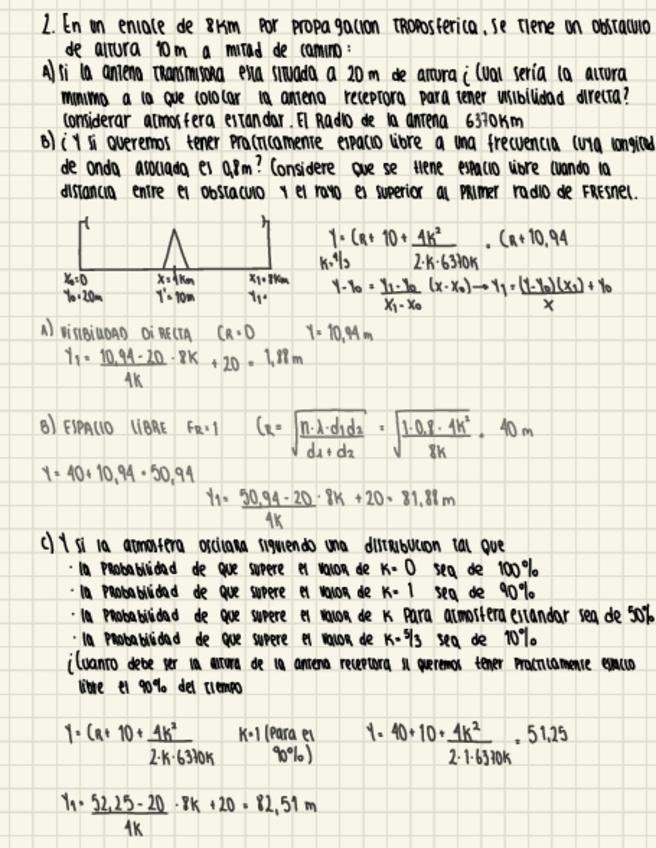 2. En un enlace de 8Km por propagacion TROPOSferica, se tiene un obstaculo
de altura 10m a mitad de camino:
A) si la antena transmisora esta situada a 20m de altura ¿Cual sería la altura
minima a la que colocar la antena receptora para tener visibilidad directa?
considerar atmosfera estandar. El Radio de la antena 6370Km
B) ¿Y si queremos tener practicamente espacio libre a una frecuencia cuya longitud
de onda asociada es 0,8m? Considere que se tiene espacio libre cuando la
distancia entre el obstaculo y el rayo es superior al primer radio de FRESNEL.
Y = CR + 10 + 4K² / 2·K·6370K = CR + 10,94
K=4/3
X₀=0 X=4Km X₁=8Km
Y₀=20m Y'=10m Y₁=
Y-Y₀ = Y₁-Y₀ / X₁-X₀ (X-X₀) → Y₁ = (Y-Y₀)(X₁) / X + Y₀
A) VISIBILIDAD DIRECTA CR=0 Y=10,94m
Y₁ = 10,94-20 / 4K · 8K + 20 = 1,88m
B) ESPACIO LIBRE FR=1 CR = √(n·λ·d₁d₂ / d₁+d₂) = √(1·0,8·4K² / 8K) = 40m
Y = 40+10,94 = 50,94
Y₁ = 50,94-20 / 4K · 8K + 20 = 81,88m
C) Y si la atmosfera oscilara siguiendo una distribucion tal que
· la probabilidad de que supere el valor de K=0 sea de 100%
· la probabilidad de que supere el valor de K=1 sea de 90%
· la probabilidad de que supere el valor de K para atmosfera estandar sea de 50%
· la probabilidad de que supere el valor de K=5/3 sea de 10%
¿Cuanto debe ser la altura de la antena receptora si queremos tener practicamente espacio
libre el 90% del tiempo
Y = CR + 10 + 4K² / 2·K·6370K K=1 (para el 90%) Y = 40+10+ 4K² / 2·1·6370K = 51,25
Y₁ = 52,25-20 / 4K · 8K + 20 = 82,51m